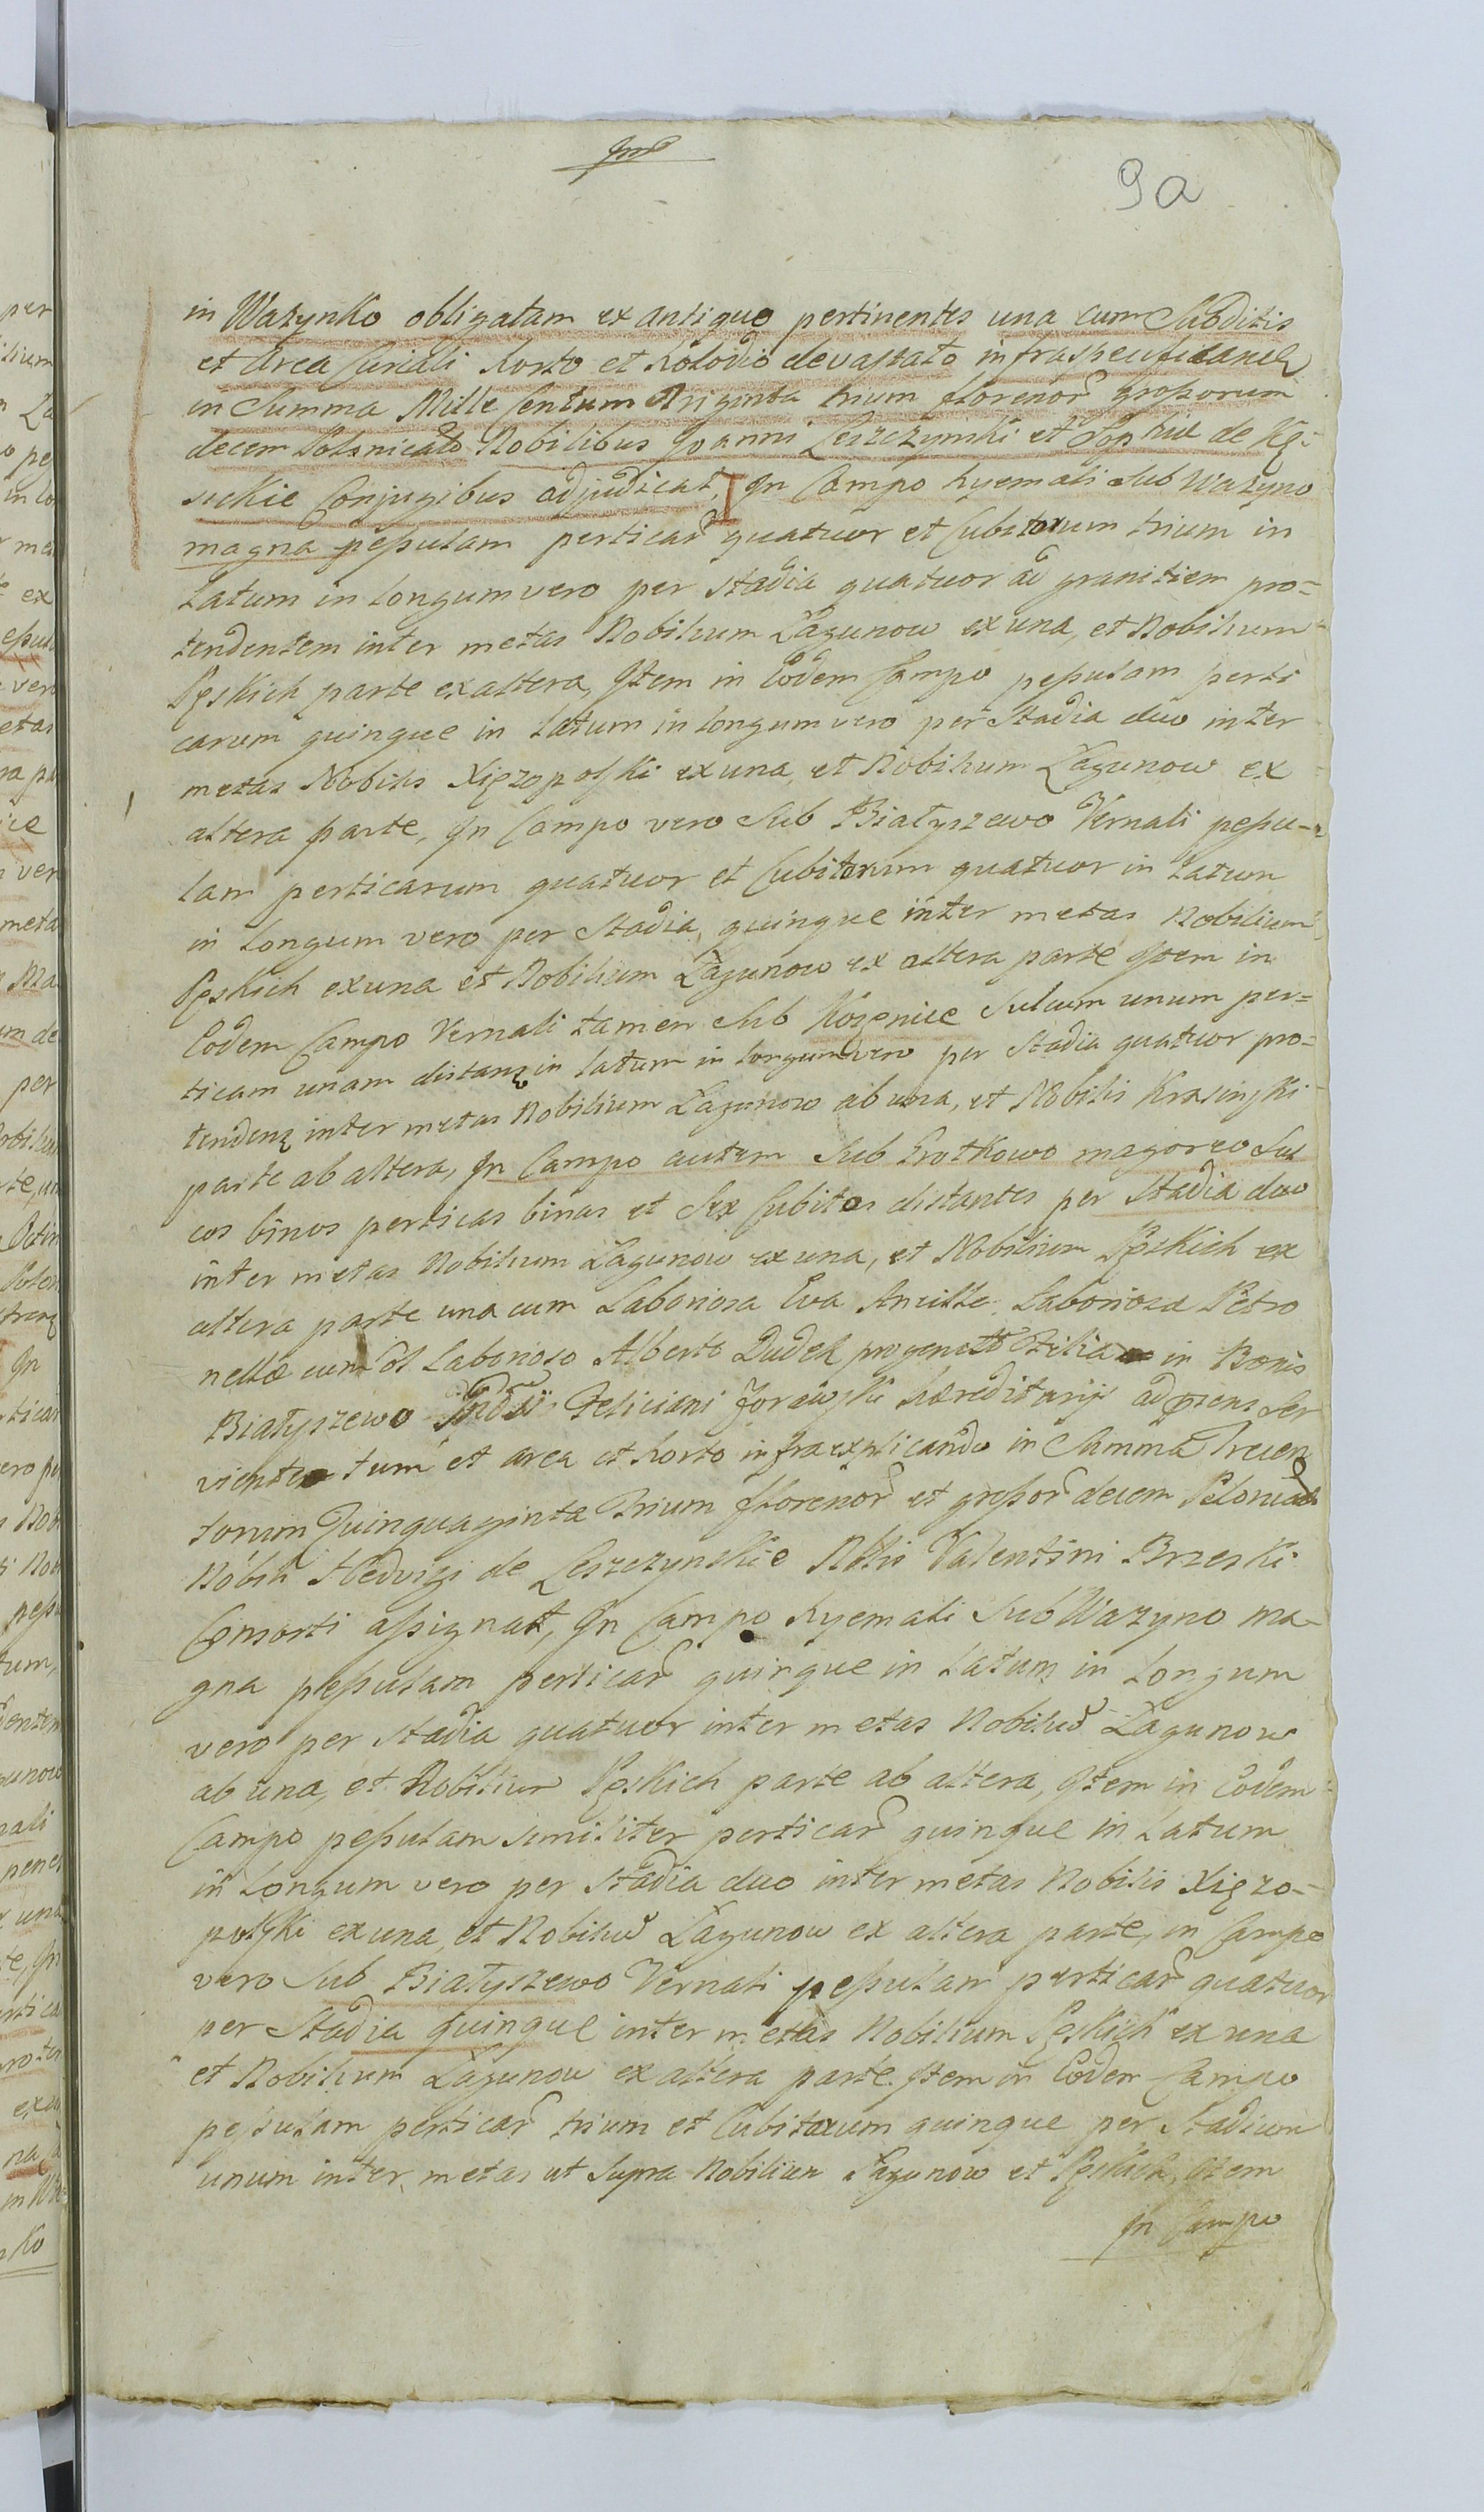 9a
in Wazynko obligatam ex antiquo pertinentes una cum Subditis
et Area Curiali horto et Kołodis devastato infraspecificandis
in Summa Mille Centum Triginta trium florenor grossorum
decem Polonicals Nobilibus Joanni Leszczynski et Sophiæ de Kęsi-
sickie Conjugibus adjudicat, In Campo hyemali Sub Wazyno
magna pessulam perticar quatuor et Cubitorum trium in
Latum in longum vero per Stadia quatuor ad granitiem pro=
tendentem inter metas Nobilium Łagunow ex una, et Nobilium
Pęskich parte ex altera, Item in Eodem Campo pessulam perti
carum quinque in latum in longum vero per Stadia duo inter
metas Nobilis Xięzopolski ex una, et Nobilium Łagunow ex
altera parte, In Campo vero Sub Białyszewo Vernali pessu-
lam perticarum quatuor et Cubitorum quatuor in latum
in longum vero per Stadia quinque inter metas Nobilium
Pęskich ex una et Nobilium Łagunow ex altera parte Item in
Eodem Campo Vernali tamen Sub Kosenice Sulcum unum per=
ticam unam distanę in latum in longum vero per Stadia quatuor pro=
tendenę inter metas Nobilium Łagunow ab una, et Nobilis Krasinski
parte ab altera, In Campo autem Sub Grotkowo magoreo Sul
cos binos perticas binas et Sex Cubitos distantes per Stadia duo
inter metas Nobilium Łagunow ex una, et Nobilium Pęskich ex
altera parte una cum Laboriosa Eva Ancilla Laboriosa Petro
nella cum ol Laborioso Alberto Dudek progenita Filia in Bonis
Białyszewo Feliciani Jorawski hæreditarijs ad præns Ser
viente tum et area et horto infra explicando in Summa Trecen
torum Quinquaginta Trium florenor et grossor decem Polonicals
Nobili Hedvigi de Leszczynskie Nblis Valentini Brzeski
Consorti assignat, In Campo hyemali Sub Wazyno ma-
gna pessulam perticar quinque in latum in longum
vero per Stadia quatuor inter metas Nobiliu Łagunow
ab una, et Nobilium Pęskich parte ab altera, Item in Eodem
Campo pessulam similiter perticar quinque in latum
in longum vero per Stadia duo inter metas Nobilis Xięzo-
polski ex una, et Nobiliu Łagunow ex altera parte, in Campo
vero Sub Białyszewo Vernali pessulam perticar quatuor
per Stadia quinque inter metas Nobilium Pęskich ex una
et Nobilium Łagunow ex altera parte. Item in Eodem Campo
pessulam perticar trium et Cubitorum quinque per Stadium
unum inter metas ut Supra Nobilium Łagunow et Pęskich, Item
In Campo